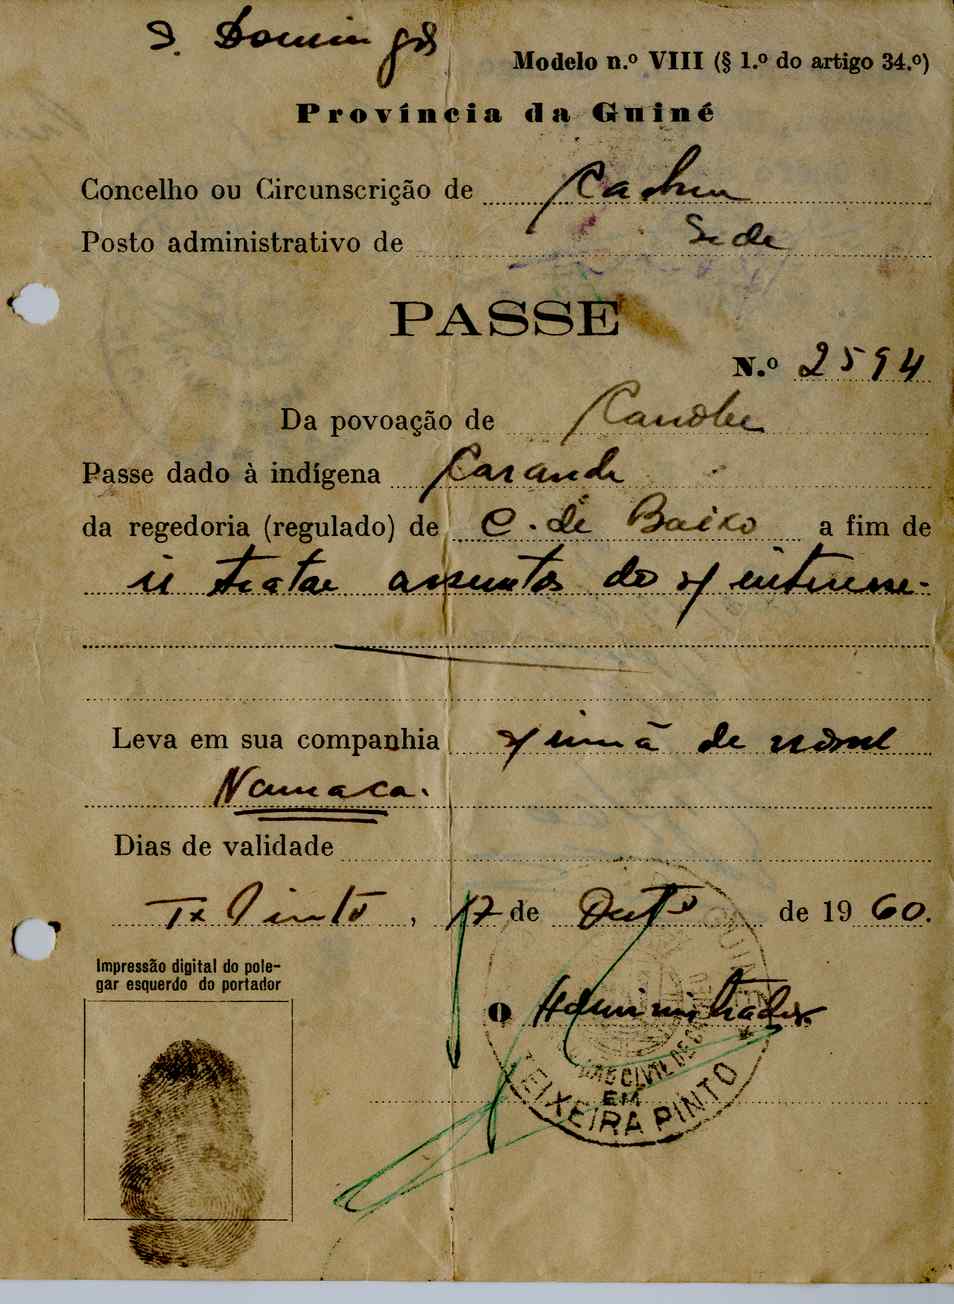 S. Domingos
Modelo n.º VIII (§ 1.º do artigo 34.º)
Província da Guiné
Concelho ou Circunscrição de Cacheu
Posto administrativo de Sede
PASSE
N.º 2594
Da povoação de Canobe
Passe dado à indígena
da regedoria (regulado) de C. de Baixo a fim de
ir tratar assuntos do s/ interesse.
Leva em sua companhia s/ irmã de nome
Namaca.
Dias de validade
Tx Pinto, 17 de de 1960.
Impressão digital do pole-
gar esquerdo do portador
O Administrador
CIVIL DE
EM
TEIXEIRA PINTO